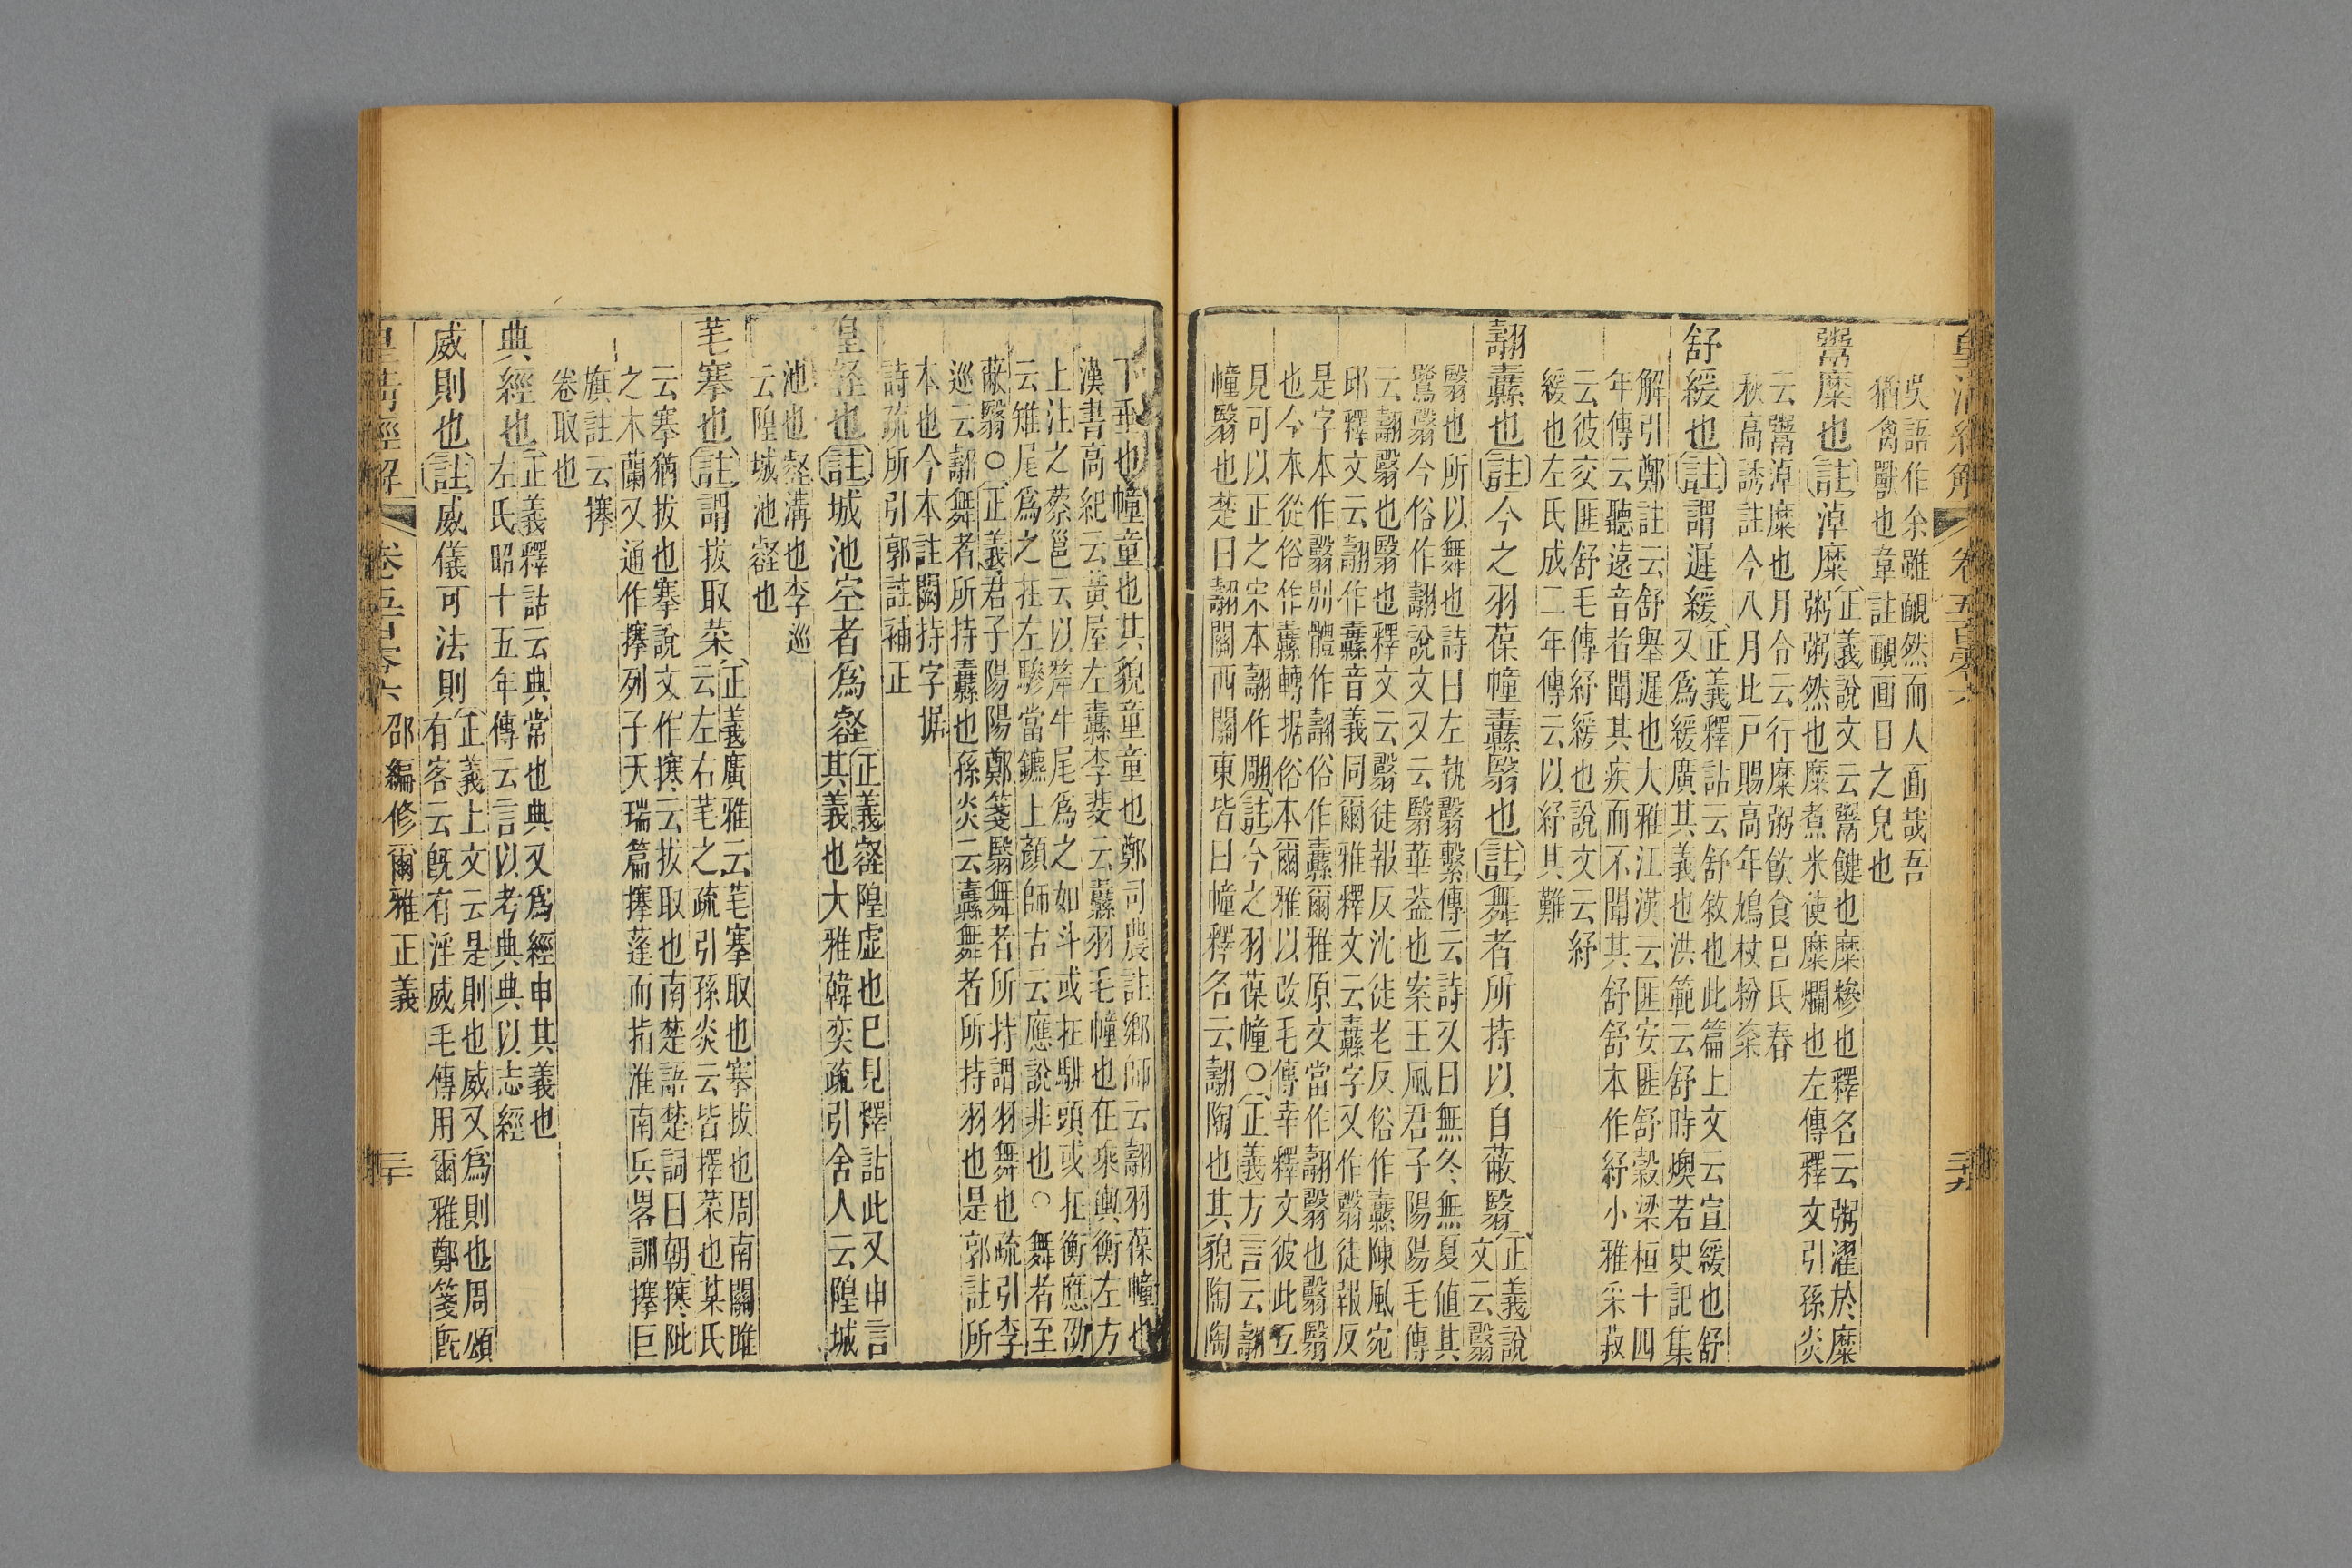 皇清經解 卷五百零六 三十九
吳語作余雖靦然而人面哉吾
猶禽獸也韋註靦面目之皃也
鬻糜也註淖糜正義說文云鬻鍵也糜糝也釋名云粥濯於糜
粥粥然也糜煮米使糜爛也左傳釋文引孫炎
云鬻淖糜也月令云行糜粥飲食呂氏春
秋高誘註今八月比戸賜高年鳩杖粉粢
舒緩也註謂遲緩正義釋詁云舒敘也此篇上文云宣緩也舒
又爲緩廣其義也洪範云舒時燠若史記集
解引鄭註云舒舉遲也大雅江漢云匪安匪舒榖梁桓十四
年傳云聽遠音者聞其疾而不聞其舒舒本作紓小雅采菽
云彼交匪舒毛傳紓緩也說文云紓
緩也左氏成二年傳云以紓其難
翿纛也註今之羽葆幢纛翳也註舞者所持以自蔽翳正義說
文云翳
翳也所以舞也詩曰左執翳繫傳云詩又曰無冬無夏值其
鷺翳今俗作翿說文又云翳華葢也案王風君子陽陽毛傳
云翿翳也翳也釋文云翳徒報反沈徒老反俗作纛陳風宛
邱釋文云翿作纛音義同爾雅釋文云纛字又作翳徒報反
是字本作翳別體作翿俗作纛爾雅原文當作翿翳也翳翳
也今本從俗作纛轉据俗本爾雅以改毛傳幸釋文彼此互
見可以正之宋本翿作䎃註今之羽葆幢○正義方言云翿
幢翳也楚曰翿關西關東皆曰幢釋名云翿陶也其貌陶陶
下垂也幢童也其貌童童也鄭司農註鄉師云翿羽葆幢也
漢書高紀云黃屋左纛李斐云纛羽毛幢也在乘輿衡左方
上注之蔡邕云以犛牛尾爲之如斗或在騑頭或在衡應劭
云雉尾爲之在左驂當鑣上顏師古云應說非也○舞者至
蔽翳○正義君子陽陽鄭箋翳舞者所持謂羽舞也疏引李
巡云翿舞者所持纛也孫炎云纛舞者所持羽也是郭註所
本也今本註闕持字据
詩疏所引郭註補正
隍壑也註城池空者爲壑正義壑隍虛也已見釋詁此又申言
其義也大雅韓奕疏引舍人云隍城
池也壑溝也李巡
云隍城池壑也
芼搴也註謂拔取菜正義廣雅云芼搴取也搴拔也周南關雎
云左右芼之疏引孫炎云皆擇菜也某氏
云搴猶拔也搴說文作㩃云拔取也南楚語楚詞曰朝㩃阰
之木蘭又通作攓列子天瑞篇攓蓬而指淮南兵畧訓攓巨
旗註云攓
卷取也
典經也正義釋詁云典常也典又爲經申其義也
左氏昭十五年傳云言以考典典以志經
威則也註威儀可法則正義上文云是則也威又爲則也周頌
有客云旣有淫威毛傳用爾雅鄭箋旣
皇清經解 卷五百零六 邵編修爾雅正義 三十